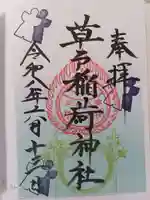 奉拝
草戸稲荷神社
令和八年二月十三日